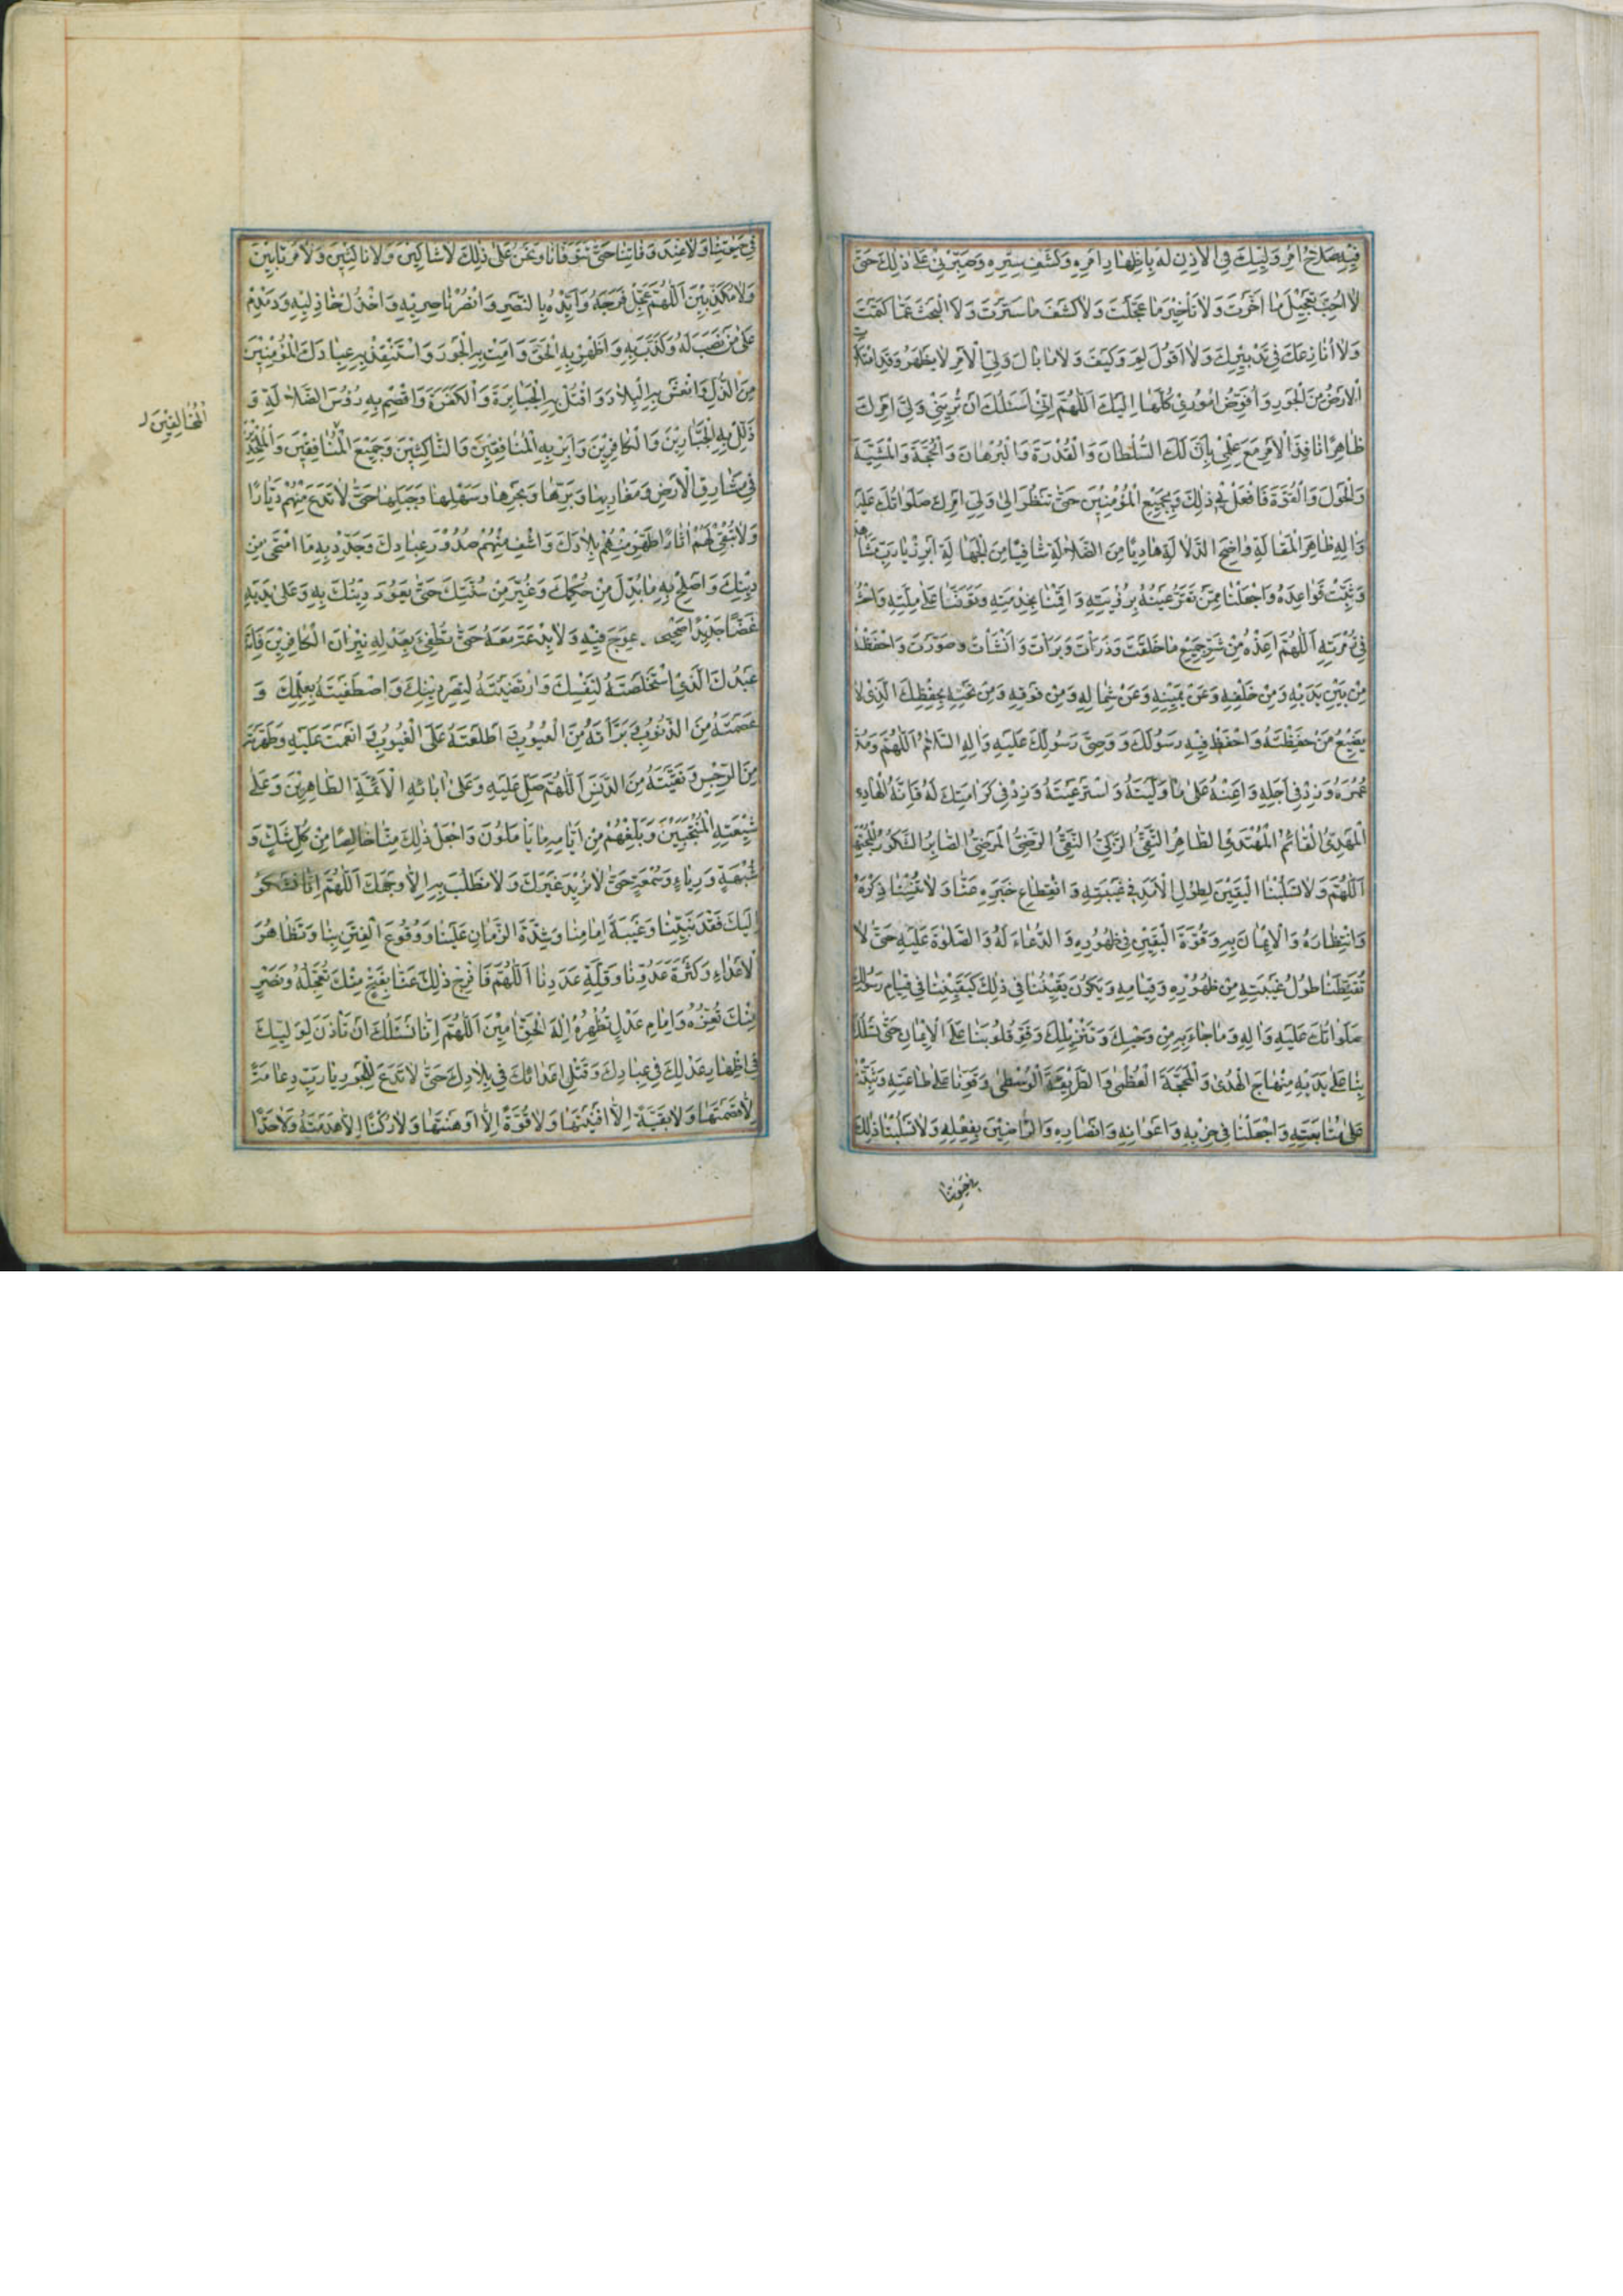 فِيْهِ صَلَاحُ اَمْرِ وَلِيِّكَ فِي الْاِذْنِ لَهُ بِاِظْهَارِ اَمْرِهٖ وَكَشْفِ سِتْرِهٖ وَصَبِّرْنِيْ عَلٰى ذٰلِكَ حَتّٰى
لَا اُحِبَّ تَعْجِيْلَ مَا اَخَّرْتَ وَلَا تَأْخِيْرَ مَا عَجَّلْتَ وَلَا كَشْفَ مَا سَتَرْتَ وَلَا الْبَحْثَ عَمَّا كَتَمْتَ
وَلَا اُنَازِعَكَ فِيْ تَدْبِيْرِكَ وَلَا اَقُوْلَ لِمَ وَكَيْفَ وَلَا مَا بَالُ وَلِيِّ الْاَمْرِ لَا يَظْهَرُ وَقَدِ امْتَلَأَتِ
الْاَرْضُ مِنَ الْجَوْرِ وَاُفَوِّضُ اُمُوْرِيْ كُلَّهَا اِلَيْكَ اَللّٰهُمَّ اِنِّيْ اَسْئَلُكَ اَنْ تُرِيَنِيْ وَلِيَّ اَمْرِكَ
ظَاهِرًا نَافِذَ الْاَمْرِ مَعَ عِلْمِيْ بِاَنَّ لَكَ السُّلْطَانَ وَالْقُدْرَةَ وَالْبُرْهَانَ وَالْحُجَّةَ وَالْمَشِيَّةَ
وَالْحَوْلَ وَالْقُوَّةَ فَافْعَلْ بِيْ ذٰلِكَ وَبِجَمِيْعِ الْمُؤْمِنِيْنَ حَتّٰى نَنْظُرَ اِلٰى وَلِيِّ اَمْرِكَ صَلَوَاتُكَ عَلَيْهِ
وَاٰلِهٖ ظَاهِرَ الْمَقَالَةِ وَاضِحَ الدَّلَالَةِ هَادِيًا مِنَ الضَّلَالَةِ شَافِيًا مِنَ الْجَهَالَةِ اَبْرِزْ يَا رَبِّ مُشَاهَدَتَهُ
وَثَبِّتْ قَوَاعِدَهُ وَاجْعَلْنَا مِمَّنْ تَقَرُّ عَيْنُهُ بِرُؤْيَتِهٖ وَاَقِمْنَا بِخِدْمَتِهٖ وَتَوَفَّنَا عَلٰى مِلَّتِهٖ وَاحْشُرْنَا
فِيْ زُمْرَتِهٖ اَللّٰهُمَّ اَعِذْهُ مِنْ شَرِّ جَمِيْعِ مَا خَلَقْتَ وَذَرَأْتَ وَبَرَأْتَ وَاَنْشَأْتَ وَصَوَّرْتَ وَاحْفَظْهُ
مِنْ بَيْنِ يَدَيْهِ وَمِنْ خَلْفِهٖ وَعَنْ يَمِيْنِهٖ وَعَنْ شِمَالِهٖ وَمِنْ فَوْقِهٖ وَمِنْ تَحْتِهٖ بِحِفْظِكَ الَّذِيْ لَا
يَضِيْعُ مَنْ حَفِظْتَهُ وَاحْفَظْ فِيْهِ رَسُوْلَكَ وَوَصِيَّ رَسُوْلِكَ عَلَيْهِ وَاٰلِهِ السَّلَامُ اَللّٰهُمَّ وَمُدَّ
عُمُرَهُ وَزِدْ فِيْ اَجَلِهٖ وَاَعِنْهُ عَلٰى مَا وَلَّيْتَهُ وَاسْتَرْعَيْتَهُ وَزِدْ فِيْ كَرَامَتِكَ لَهُ فَاِنَّهُ الْهَادِي
الْمَهْدِيُّ الْقَائِمُ الْمُهْتَدِي الطَّاهِرُ التَّقِيُّ الزَّكِيُّ النَّقِيُّ الرَّضِيُّ الْمَرْضِيُّ الصَّابِرُ الشَّكُوْرُ الْمُجْتَهِدُ
اَللّٰهُمَّ وَلَا تَسْلُبْنَا الْيَقِيْنَ لِطُوْلِ الْاَمَدِ فِيْ غَيْبَتِهٖ وَانْقِطَاعِ خَبَرِهٖ عَنَّا وَلَا تُنْسِنَا ذِكْرَهُ
وَانْتِظَارَهُ وَالْاِيْمَانَ بِهٖ وَقُوَّةَ الْيَقِيْنِ فِيْ ظُهُوْرِهٖ وَالدُّعَاءَ لَهُ وَالصَّلٰوةَ عَلَيْهِ حَتّٰى لَا
تُقَنِّطَنَا طُوْلُ غَيْبَتِهٖ مِنْ ظُهُوْرِهٖ وَقِيَامِهٖ وَيَكُوْنَ يَقِيْنُنَا فِيْ ذٰلِكَ كَيَقِيْنِنَا فِيْ قِيَامِ رَسُوْلِكَ
صَلَوَاتُكَ عَلَيْهِ وَاٰلِهٖ وَمَا جَاءَ بِهٖ مِنْ وَحْيِكَ وَتَنْزِيْلِكَ وَقَوِّ قُلُوْبَنَا عَلَى الْاِيْمَانِ حَتّٰى تَسْلُكَ
بِنَا عَلٰى يَدَيْهِ مِنْهَاجَ الْهُدٰى وَالْمَحَجَّةَ الْعُظْمٰى وَالطَّرِيْقَةَ الْوُسْطٰى وَقَوِّنَا عَلٰى طَاعَتِهٖ وَثَبِّتْنَا
عَلٰى مُتَابَعَتِهٖ وَاجْعَلْنَا فِيْ حِزْبِهٖ وَاَعْوَانِهٖ وَاَنْصَارِهٖ وَالرَّاضِيْنَ بِفِعْلِهٖ وَلَا تَسْلُبْنَا ذٰلِكَ
فِيْ حَيٰوتِنَا
فِيْ حَيٰوتِنَا وَلَا عِنْدَ وَفَاتِنَا حَتّٰى تَتَوَفَّانَا وَنَحْنُ عَلٰى ذٰلِكَ لَا شَاكِّيْنَ وَلَا نَاكِثِيْنَ وَلَا مُرْتَابِيْنَ
وَلَا مُكَذِّبِيْنَ اَللّٰهُمَّ عَجِّلْ فَرَجَهُ وَاَيِّدْهُ بِالنَّصْرِ وَانْصُرْ نَاصِرِيْهِ وَاخْذُلْ خَاذِلِيْهِ وَدَمْدِمْ
عَلٰى مَنْ نَصَبَ لَهُ وَكَذَّبَ بِهٖ وَاَظْهِرْ بِهِ الْحَقَّ وَاَمِتْ بِهِ الْجَوْرَ وَاسْتَنْقِذْ بِهٖ عِبَادَكَ الْمُؤْمِنِيْنَ
مِنَ الذُّلِّ وَانْعَشْ بِهِ الْبِلَادَ وَاقْتُلْ بِهِ الْجَبَابِرَةَ وَالْكَفَرَةَ وَاقْصِمْ بِهٖ رُؤُسَ الضَّلَالَةِ وَ
ذَلِّلْ بِهِ الْجَبَّارِيْنَ وَالْكَافِرِيْنَ وَاَبِرْ بِهِ الْمُنَافِقِيْنَ وَالنَّاكِثِيْنَ وَجَمِيْعَ الْمُنَافِقِيْنَ وَالْمُلْحِدِيْنَ
الْمُخَالِفِيْنَ
فِيْ مَشَارِقِ الْاَرْضِ وَمَغَارِبِهَا وَبَرِّهَا وَبَحْرِهَا وَسَهْلِهَا وَجَبَلِهَا حَتّٰى لَا تَدَعَ مِنْهُمْ دَيَّارًا
وَلَا تُبْقِيَ لَهُمْ اٰثَارًا طَهِّرْ مِنْهُمْ بِلَادَكَ وَاشْفِ مِنْهُمْ صُدُوْرَ عِبَادِكَ وَجَدِّدْ بِهٖ مَا امْتَحٰى مِنْ
دِيْنِكَ وَاَصْلِحْ بِهٖ مَا بُدِّلَ مِنْ حُكْمِكَ وَغُيِّرَ مِنْ سُنَّتِكَ حَتّٰى يَعُوْدَ دِيْنُكَ بِهٖ وَعَلٰى يَدَيْهِ
غَضًّا جَدِيْدًا عِوَجَ فِيْهِ وَلَا بِدْعَةَ مَعَهُ حَتّٰى تُطْفِئَ بِعَدْلِهٖ نِيْرَانَ الْكَافِرِيْنَ فَاِنَّهُ
عَبْدُكَ الَّذِي اسْتَخْلَصْتَهُ لِنَفْسِكَ وَارْتَضَيْتَهُ لِنَصْرِ دِيْنِكَ وَاصْطَفَيْتَهُ بِعِلْمِكَ وَ
عَصَمْتَهُ مِنَ الذُّنُوْبِ وَبَرَّأْتَهُ مِنَ الْعُيُوْبِ وَاَطْلَعْتَهُ عَلَى الْغُيُوْبِ وَاَنْعَمْتَ عَلَيْهِ وَطَهَّرْتَهُ
مِنَ الرِّجْسِ وَنَقَّيْتَهُ مِنَ الدَّنَسِ اَللّٰهُمَّ صَلِّ عَلَيْهِ وَعَلٰى اٰبَائِهِ الْاَئِمَّةِ الطَّاهِرِيْنَ وَعَلٰى
شِيْعَتِهِ الْمُنْتَجَبِيْنَ وَبَلِّغْهُمْ مِنْ اَيَّامِهٖ مَا يَأْمَلُوْنَ وَاجْعَلْ ذٰلِكَ مِنَّا خَالِصًا مِنْ كُلِّ شَكٍّ وَ
شُبْهَةٍ وَرِيَاءٍ وَسُمْعَةٍ حَتّٰى لَا نُرِيْدَ غَيْرَكَ وَلَا نَطْلُبَ بِهٖ اِلَّا وَجْهَكَ اَللّٰهُمَّ اِنَّا نَشْكُوْ
اِلَيْكَ فَقْدَ نَبِيِّنَا وَغَيْبَةَ اِمَامِنَا وَشِدَّةَ الزَّمَانِ عَلَيْنَا وَوُقُوْعَ الْفِتَنِ بِنَا وَتَظَاهُرَ
الْاَعْدَاءِ وَكَثْرَةَ عَدُوِّنَا وَقِلَّةَ عَدَدِنَا اَللّٰهُمَّ فَافْرُجْ ذٰلِكَ عَنَّا بِفَتْحٍ مِنْكَ تُعَجِّلُهُ وَنَصْرٍ
مِنْكَ تُعِزُّهُ وَاِمَامِ عَدْلٍ تُظْهِرُهُ اِلٰهَ الْحَقِّ اٰمِيْنَ اَللّٰهُمَّ اِنَّا نَسْئَلُكَ اَنْ تَأْذَنَ لِوَلِيِّكَ
فِيْ اِظْهَارِ عَدْلِكَ فِيْ عِبَادِكَ وَقَتْلِ اَعْدَائِكَ فِيْ بِلَادِكَ حَتّٰى لَا تَدَعَ لِلْجَوْرِ يَا رَبِّ دِعَامَةً
اِلَّا قَصَمْتَهَا وَلَا بَقِيَّةً اِلَّا اَفْنَيْتَهَا وَلَا قُوَّةً اِلَّا اَوْهَنْتَهَا وَلَا رُكْنًا اِلَّا هَدَمْتَهُ وَلَا حَدًّا